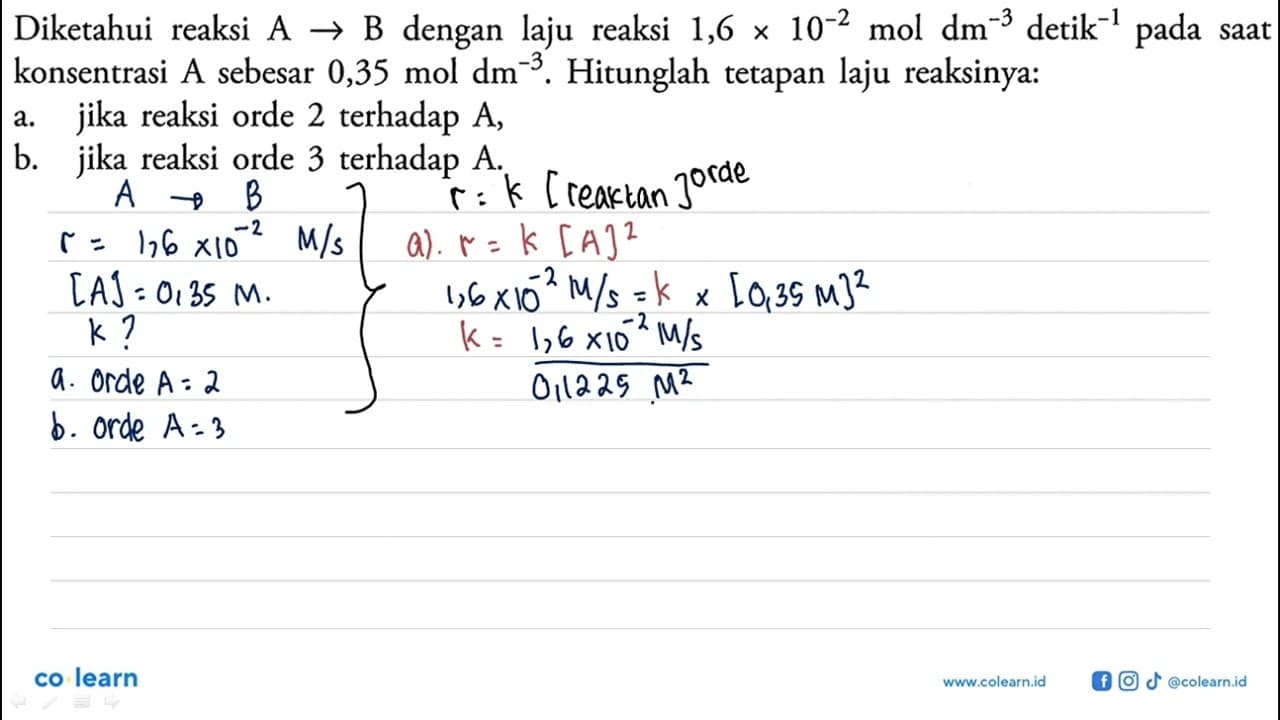 Diketahui reaksi A → B dengan laju reaksi 1,6 × 10⁻² mol dm⁻³ detik⁻¹ pada saat
konsentrasi A sebesar 0,35 mol dm⁻³. Hitunglah tetapan laju reaksinya:
a. jika reaksi orde 2 terhadap A,
b. jika reaksi orde 3 terhadap A.
A → B
r = 1,6 × 10⁻² M/s
[A] = 0,35 M.
k ?
a. orde A = 2
b. orde A = 3
r = k [reaktan]ᵒʳᵈᵉ
a). r = k [A]²
1,6 × 10⁻² M/s = k × [0,35 M]²
k = 1,6 × 10⁻² M/s
0,1225 M²
co learn
www.colearn.id
@colearn.id